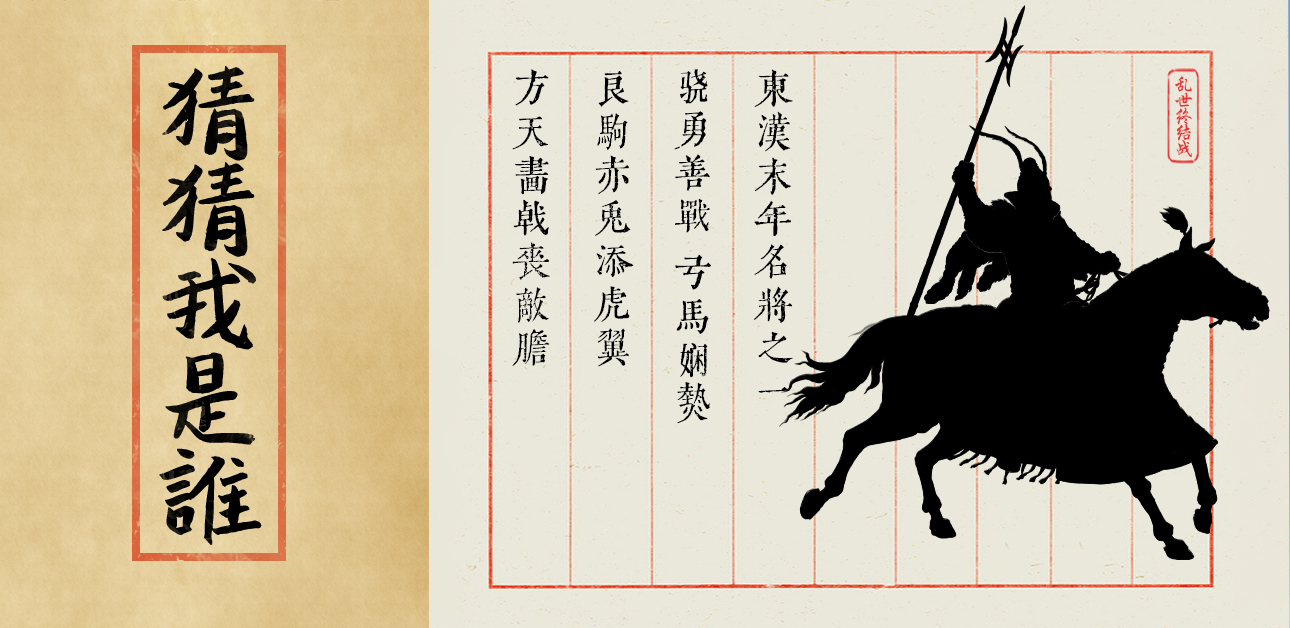 猜猜我是誰
乱世终结战
東漢末年名將之一
骁勇善戰 弓馬娴熱
良駒赤兎添虎翼
方天畵戟喪敵膽